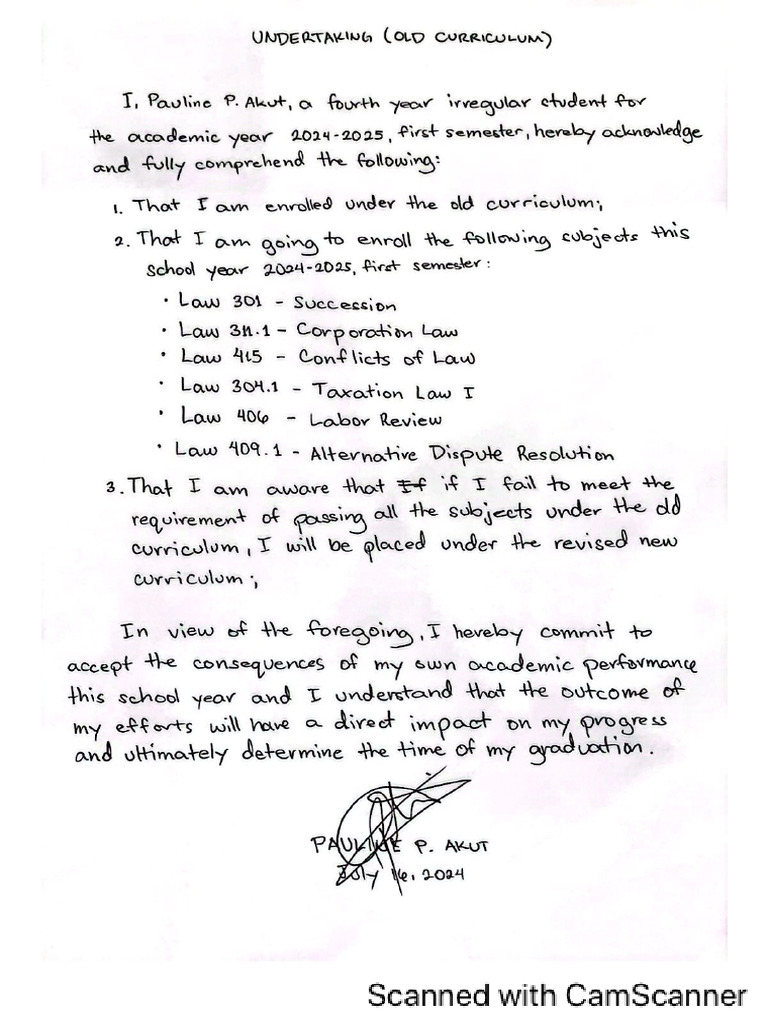 UNDERTAKING (OLD CURRICULUM)
I, Pauline P. Akut, a fourth year irregular student for
the academic year 2024-2025, first semester, hereby acknowledge
and fully comprehend the following:
1. That I am enrolled under the old curriculum;
2. That I am going to enroll the following subjects this
school year 2024-2025, first semester:
• Law 301 - Succession
• Law 311.1 - Corporation Law
• Law 415 - Conflicts of Law
• Law 304.1 - Taxation Law I
• Law 406 - Labor Review
• Law 409.1 - Alternative Dispute Resolution
3. That I am aware that If if I fail to meet the
requirement of passing all the subjects under the old
curriculum, I will be placed under the revised new
curriculum;
In view of the foregoing, I hereby commit to
accept the consequences of my own academic performance
this school year and I understand that the outcome of
my efforts will have a direct impact on my progress
and ultimately determine the time of my graduation.
PAULINE P. AKUT
July 16, 2024
Scanned with CamScanner